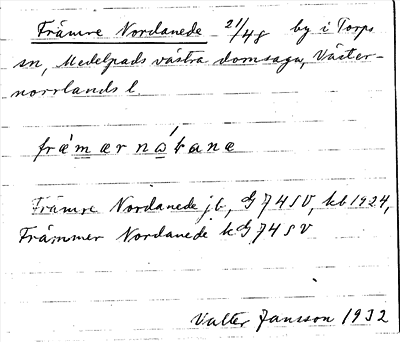 Främre Nordanede 21/48 by i Torps
sn, Medelpads västra domsaga, Väster-
norrlands l.
fræ̀mær no̲kane
Främre Nordanede jb, G74SV, kb 1924,
Främmer Nordanede k G74SV
Valter Jansson 1932